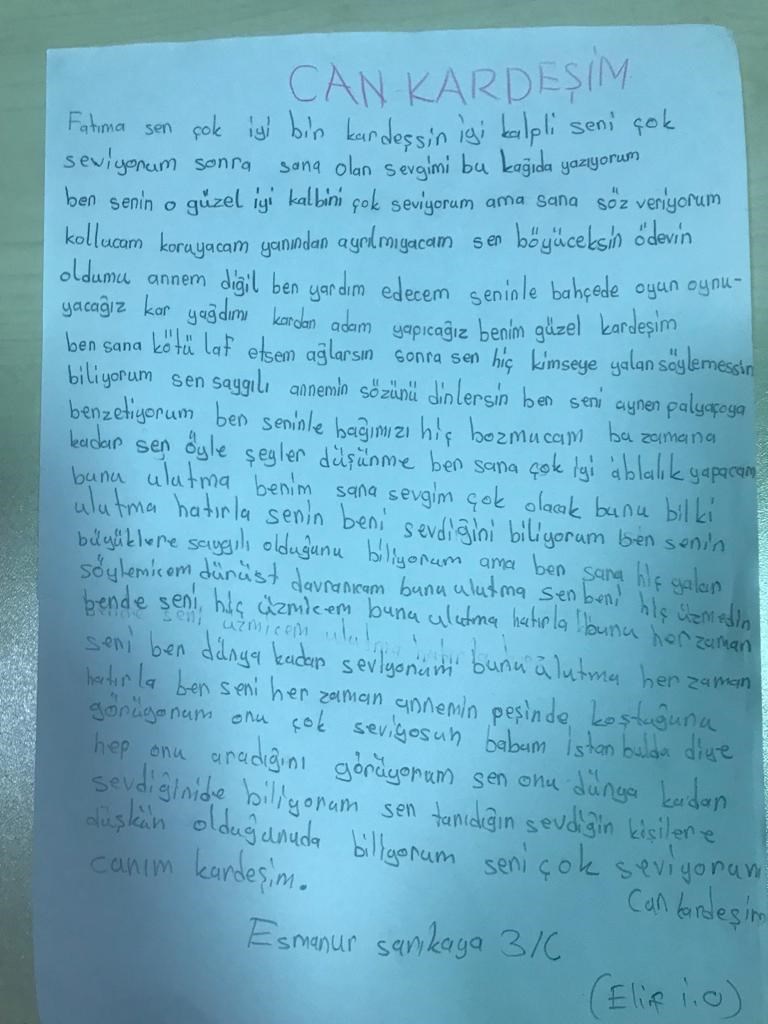 CAN KARDEŞİM
Fatıma sen çok iyi bin kardeşsin iyi kalpli seni çok
seviyorum sonra sana olan sevgimi bu kağıda yazıyorum
ben senin o güzel iyi kalbini çok seviyorum ama sana söz veriyorum
kollucam koruyacam yanından ayrılmıyacam sen böyüceksin ödevin
oldumu annem diğil ben yardım edecem seninle bahçede oyun oynu-
yacağız kar yağdımı kardan adam yapıcağız benim güzel kardeşim
ben sana kötü laf etsem ağlarsın sonra sen hiç kimseye yalan söylemessin
biliyorum sen saygılı annemin sözünü dinlersin ben seni aynen palyaçoya
benzetiyorum ben seninle bağımızı hiç bozmucam bu zamana
kadar sen öyle şeyler düşünme ben sana çok iyi ablalık yapacam
bunu ulutma benim sana sevgim çok olacak bunu bilki
ulutma hatırla senin beni sevdiğini biliyorum ben senin
büyüklere saygılı olduğunu biliyorum ama ben sana hiç yalan
söylemicem dürüst davranıcam bunu ulutma sen beni hiç üzmedin
bende seni hiç üzmicem bunu ulutma hatırla bunu her zaman
seni ben dünya kadar seviyorum bunu ulutma her zaman
hatırla ben seni her zaman annemin peşinde koştuğunu
görüyorum onu çok seviyosun babam istanbulda diye
hep onu aradığını görüyorum sen onu dünya kadar
sevdiğinide biliyorum sen tanıdığın sevdiğin kişilere
düşkün olduğunuda biliyorum seni çok seviyorum
canım kardeşim.
Can kardeşim
Esmanur sarıkaya 3/C
(Elif i.O)